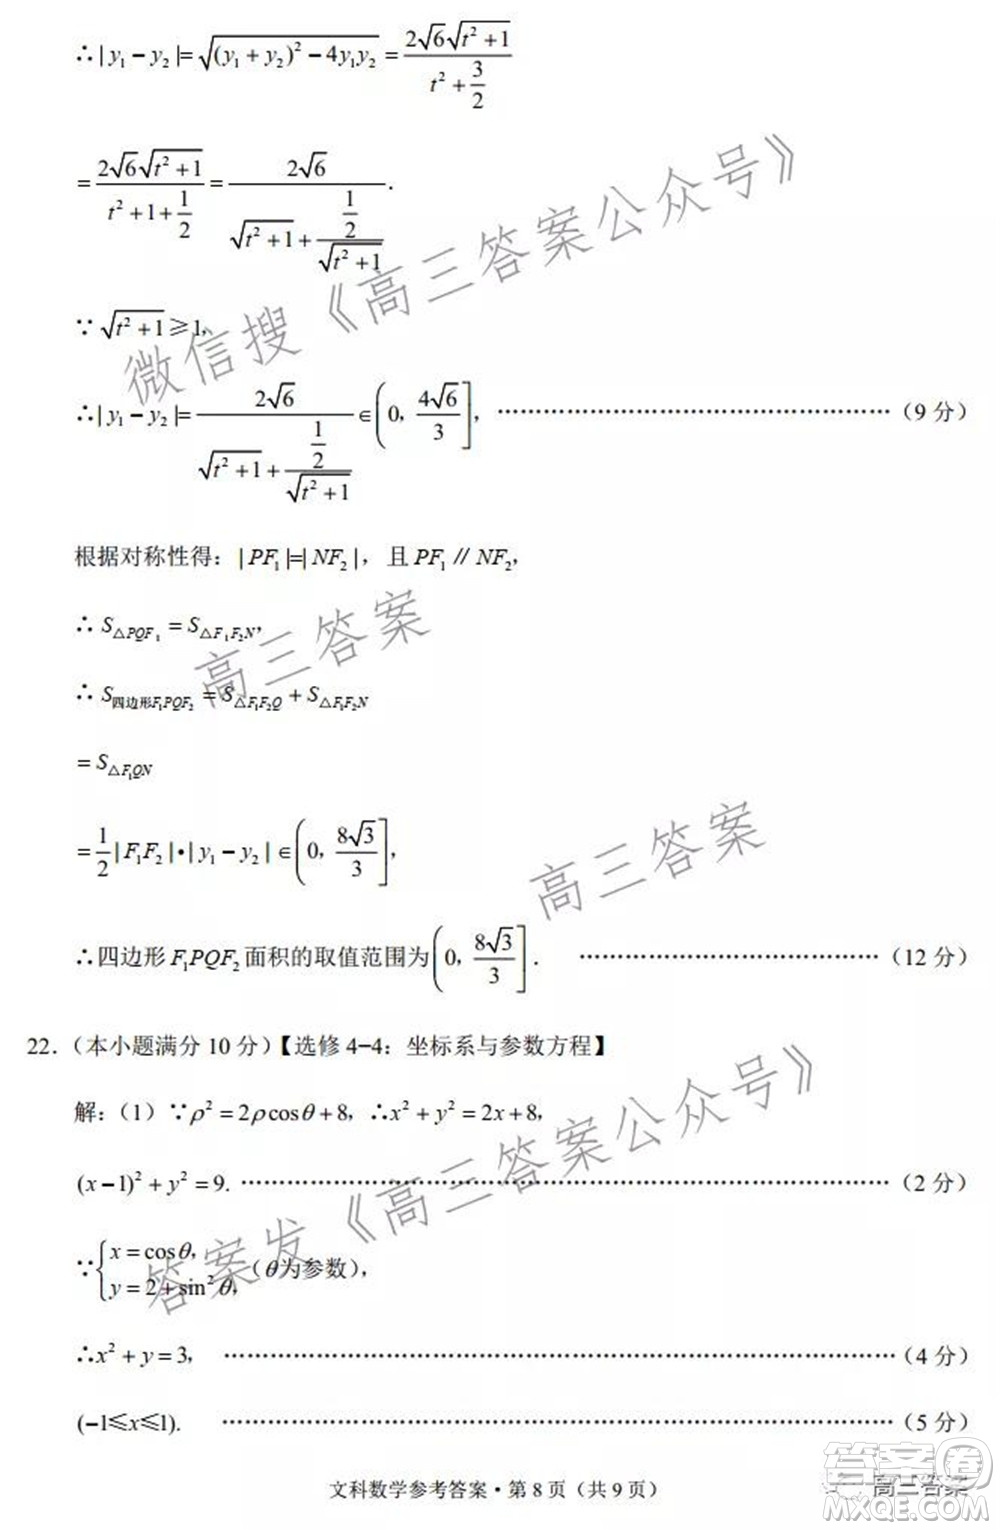 ∴|y₁−y₂|=√((y₁+y₂)²−4y₁y₂)=2√6√(t²+1)/(t²+3/2)
=2√6√(t²+1)/(t²+1+1/2)=2√6/(√(t²+1)+(1/2)/√(t²+1)).
∵√(t²+1)≥1,
∴|y₁−y₂|=2√6/(√(t²+1)+(1/2)/√(t²+1))∈(0, 4√6/3], ……………………………………………（9 分）
根据对称性得：|PF₁|=|NF₂|，且 PF₁∥NF₂,
∴ S△PQF₁=S△F₁F₂N,
∴ S四边形F₁PQF₂=S△F₁F₂Q+S△F₁F₂N
=S△F₁QN
=1/2|F₁F₂|•|y₁−y₂|∈(0, 8√3/3],
∴四边形 F₁PQF₂ 面积的取值范围为(0, 8√3/3]. …………………………………（12 分）
22．（本小题满分 10 分）【选修 4−4：坐标系与参数方程】
解：（1）∵ρ²=2ρcosθ+8, ∴x²+y²=2x+8,
(x−1)²+y²=9. ……………………………………………………………………（2 分）
∵{x=cosθ, y=2+sin²θ,（θ为参数）,
∴x²+y=3, ……………………………………………………………………（4 分）
(−1≤x≤1). ……………………………………………………………………（5 分）
文科数学参考答案·第 8 页（共 9 页）
微信搜《高三答案公众号》
高三答案
高三答案
答案发《高三答案公众号》
高三答案
答案圈
MXQE.COM